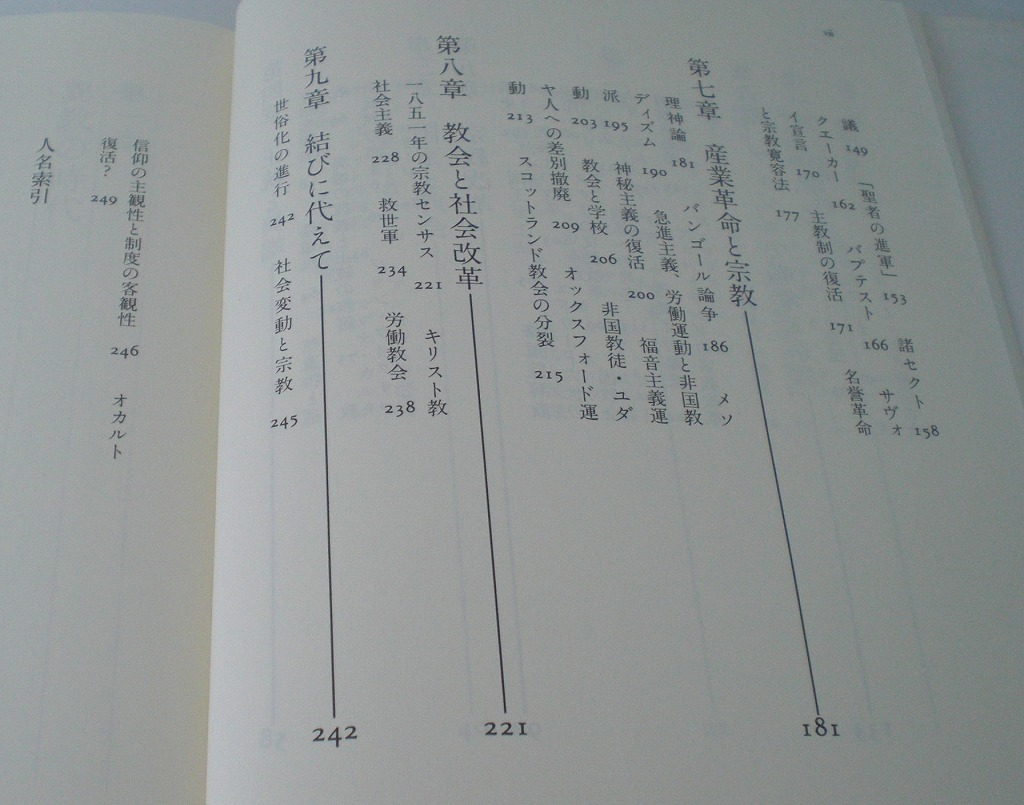 議 149 「聖者の進軍」 153 諸セクト 158
クエーカー 162 バプテスト 166 サヴォ
イ宣言 170 主教制の復活 171 名誉革命
と宗教寛容法 177
第七章 産業革命と宗教 181
理神論 181 バンゴール論争 186 メソ
ディズム 190 急進主義、労働運動と非国教
派 195 神秘主義の復活 200 福音主義運
動 203 教会と学校 206 非国教徒・ユダ
ヤ人への差別撤廃 209 オックスフォード運
動 213 スコットランド教会の分裂 215
第八章 教会と社会改革 221
一八五一年の宗教センサス 221 キリスト教
社会主義 228 救世軍 234 労働教会 238
第九章 結びに代えて 242
世俗化の進行 242 社会変動と宗教 245
信仰の主観性と制度の客観性 246 オカルト
復活? 249
人名索引